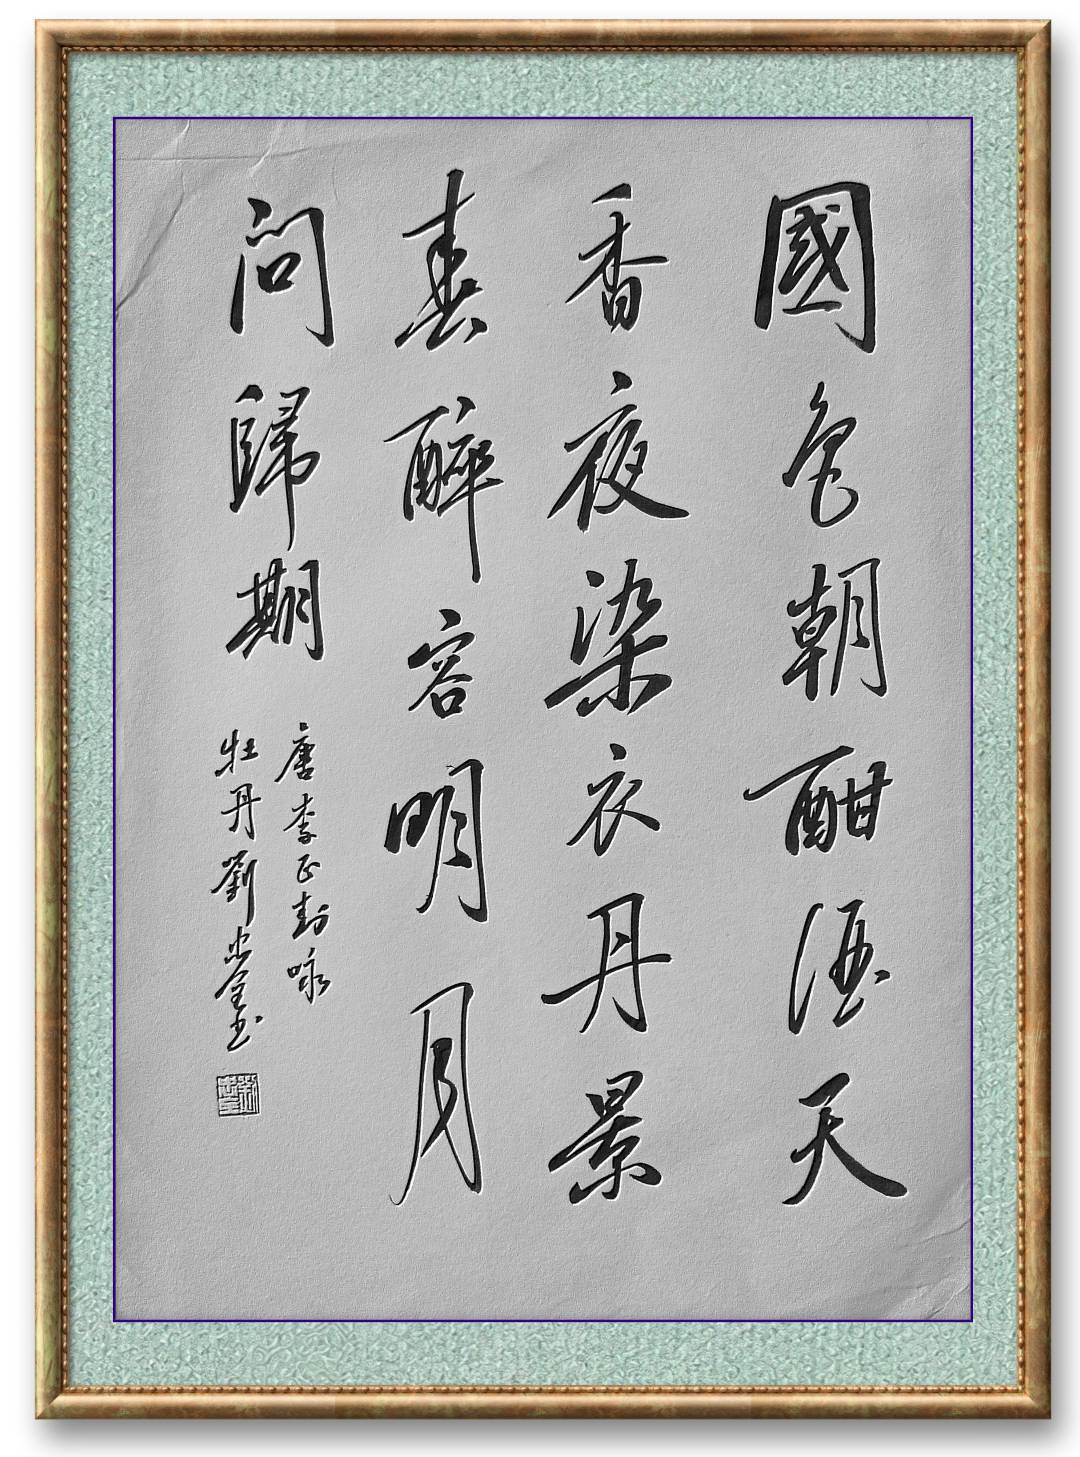 國色朝酣酒天
香夜染衣丹景
春醉容明月
問歸期
唐李正封咏
牡丹劉忠全书